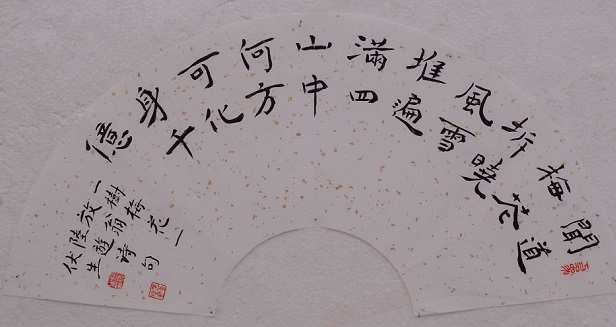 聞道
梅花
坼曉
風雪
堆遍
滿四
山中
何方
可化
身千
億
一樹梅花一
放翁
陸遊诗句
伏生